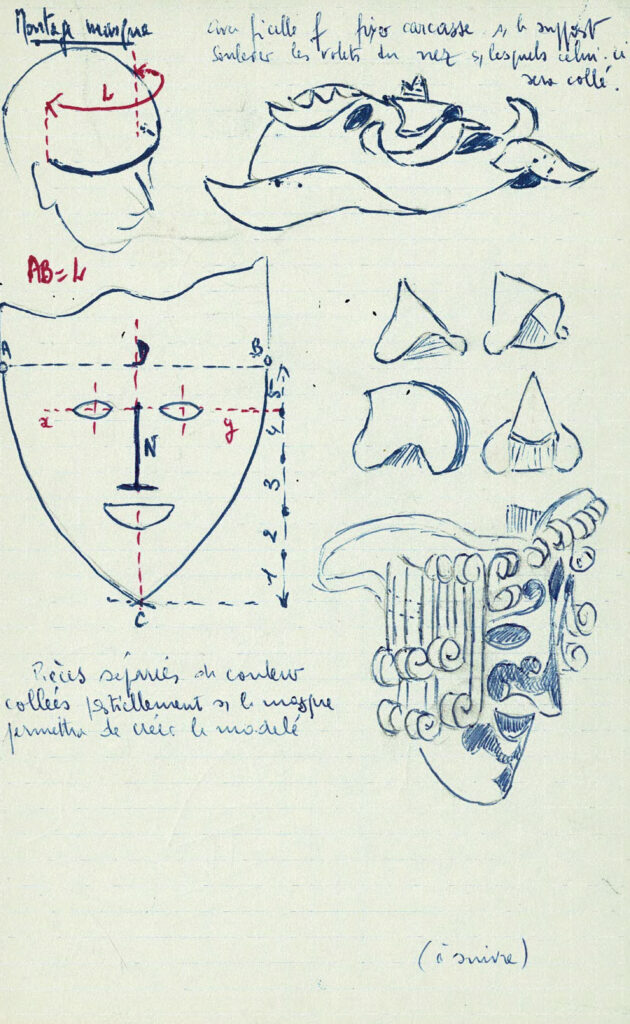 Montage masque
ficelle pr fixer carcasse s/ le support
Soulever les volets du nez s/ lesquels celui-ci
sera collé.
L
AB = L
A
D
B
x
y
N
5
4
3
2
1
C
Pièces séparées de couleur
collées partiellement s/ le masque
permettra de créer le modelé
(à suivre)